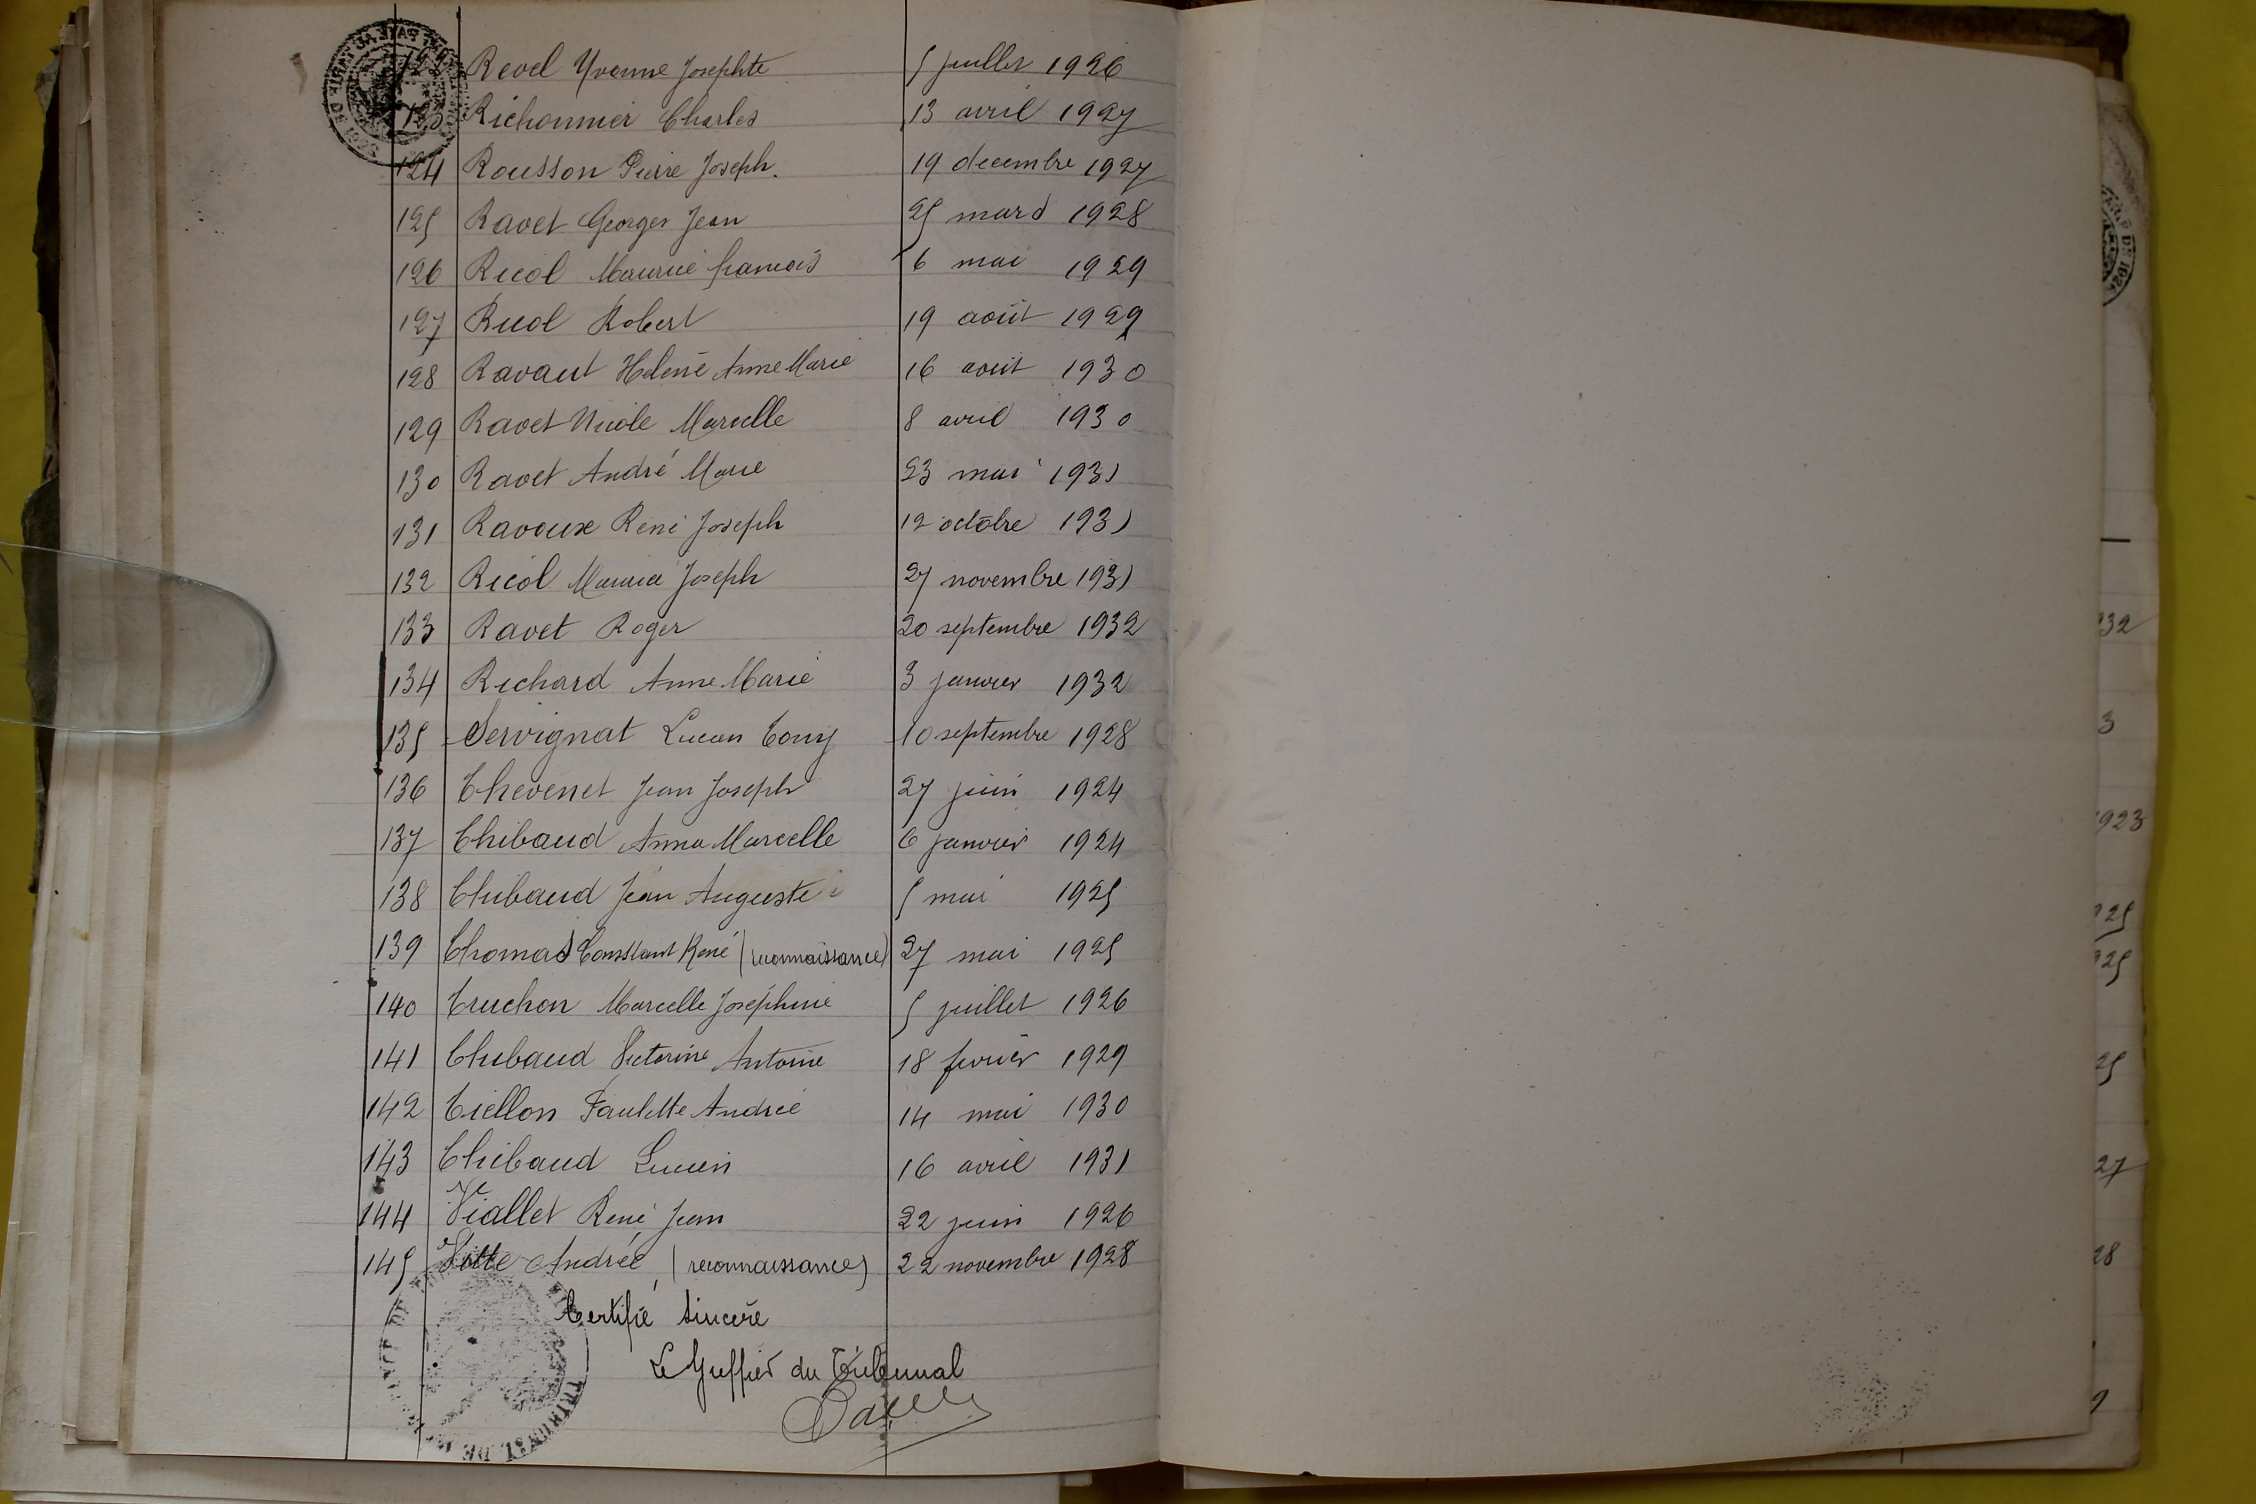 122 Revel Yvonne Josephte 5 juillet 1926
123 Richonnier Charles 13 avril 1927
124 Rousson Pierre Joseph. 19 decembre 1927
125 Ravet Georges Jean 25 mars 1928
126 Ricol Maurice francois 6 mai 1929
127 Ricol Robert 19 août 1929
128 Ravaut Helene Anne Marie 16 août 1930
129 Ravet Nicole Marcelle 8 avril 1930
130 Ravet André Marie 23 mai 1931
131 Ravoux René Joseph 12 octobre 1931
132 Ricol Maurice Joseph 27 novembre 1931
133 Ravet Roger 20 septembre 1932
134 Richard Anne Marie 3 janvier 1932
135 Servignat Lucien Tony 10 septembre 1928
136 Thevenet Jean Joseph 27 juin 1924
137 Thibaud Anna Marcelle 6 janvier 1924
138 Thibaud Jean Auguste 5 mai 1925
139 Thomas Constant René (reconnaissance) 27 mai 1925
140 Truchon Marcelle Joséphine 5 juillet 1926
141 Thibaud Victorine Antoine 18 fevrier 1929
142 Tiellon Paulette Andrée 14 mai 1930
143 Thibaud Lucien 16 avril 1931
144 Viallet René Jean 22 juin 1926
145 Vitte Andrée (reconnaissance) 22 novembre 1928
Certifié sincère
Le Greffier du Tribunal
TRIBUNAL DE
32
3
1923
25
25
25
27
28